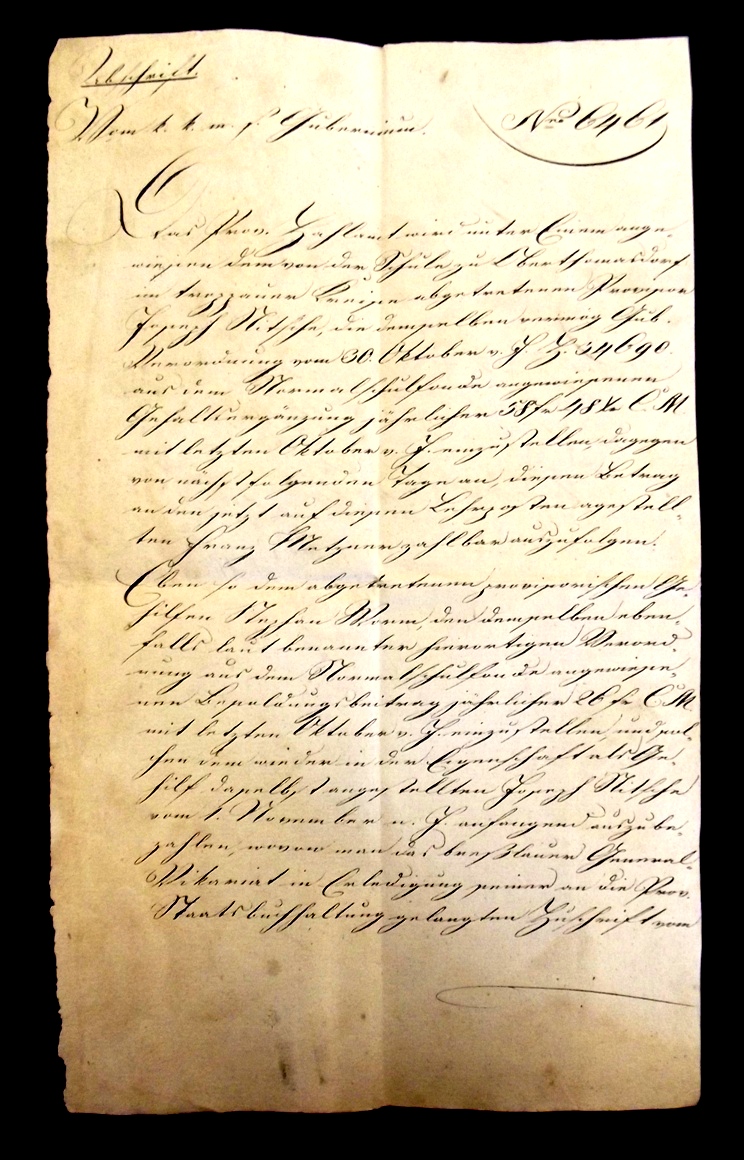 Abschrift.
Vom k. k. m. s. Gubernium. Nro 6461
Das Prov. Zahlamt wird unter Einem ange-
wiesen dem von der Schule zu Oberthomasdorf
im troppauer Kreise abgetretenen Provisor
Joseph Nitsche, die demselben vermög Gub.
Verordnung vom 30. Oktober v. J. Z. 34690.
aus dem Normalschulfonde angewiesenen
Gehaltsergänzung jährlicher 58 fr 48 Xr C. M
mit letzten Oktober v. J. einzustellen, dagegen
von nächstfolgenden Tage an, diesen Betrag
an den jetzt auf diesen Lehrposten agestell-
ten Franz Metzner zahlbar auszufolgen.
Eben so dem abgetretenen provisorischen Ge-
hilfen Stephan Worm, den demselben eben-
falls laut benannter hierortigen Verord-
nung aus dem Normalschulfonde angewiese-
nen Besoldungsbeitrag jährlicher 26 fr C. M
mit letzten Oktober v. J. einzustellen, und sol-
chen dem wieder in der Eigenschaft als Ge-
hilf daselbst angestellten Joseph Nitsche
vom 1. November v. J. anfangend auszube-
zahlen, wovon man das breßlauer General-
Vikariat in Erledigung seiner an die Prov.
Staatsbuchhaltung gelangten Zuschrift vom